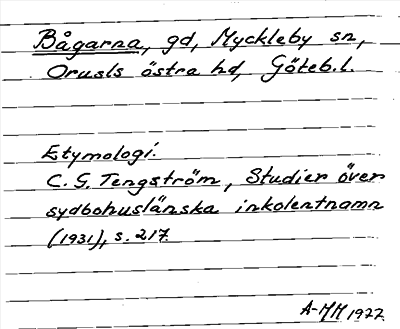 Bågarna, gd, Myckleby sn,
Orusls östra hd, Göteb.l.
Etymologi:
C. G. Tengström, Studier över
sydbohuslänska inkolentnamn
(1931), s. 217.
A-MH 1977